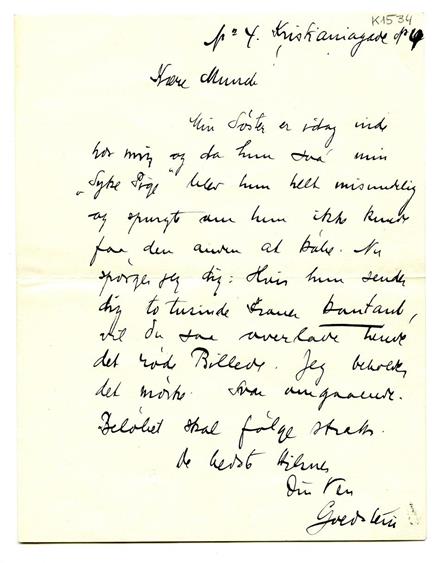 K1534
No 4. Kristianiagade
Kære Munch
Min Søster er idag inde
hos mig og da hun saá min
"Syke Pige" blev hun helt misundelig
og spurgte om hun ikke kunde
faa den anden at købe. Nu
spørger jeg dig: Hvis hun sender
dig to tusinde Kroner kontant,
vil du saa overlade hende
det røde Billede. Jeg beholder
det mørke. Svar omgaaende.
Beløbet skal følge straks.
De bedste Hilsner
Din Ven
Goldstein